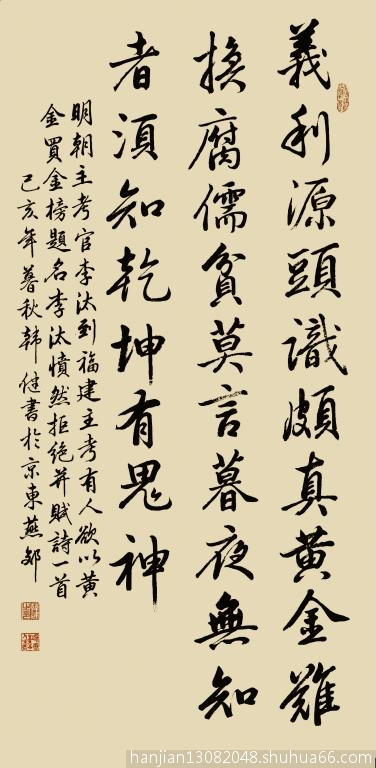 義利源頭識頗真黃金難
換腐儒貧莫言暮夜無知
者須知乾坤有鬼神
明朝主考官李汰到福建主考有人欲以黄
金買金榜題名李汰憤然拒絕并賦詩一首
己亥年暮秋韩健書於京東燕郊
hanjian13082048.shuhua66.com